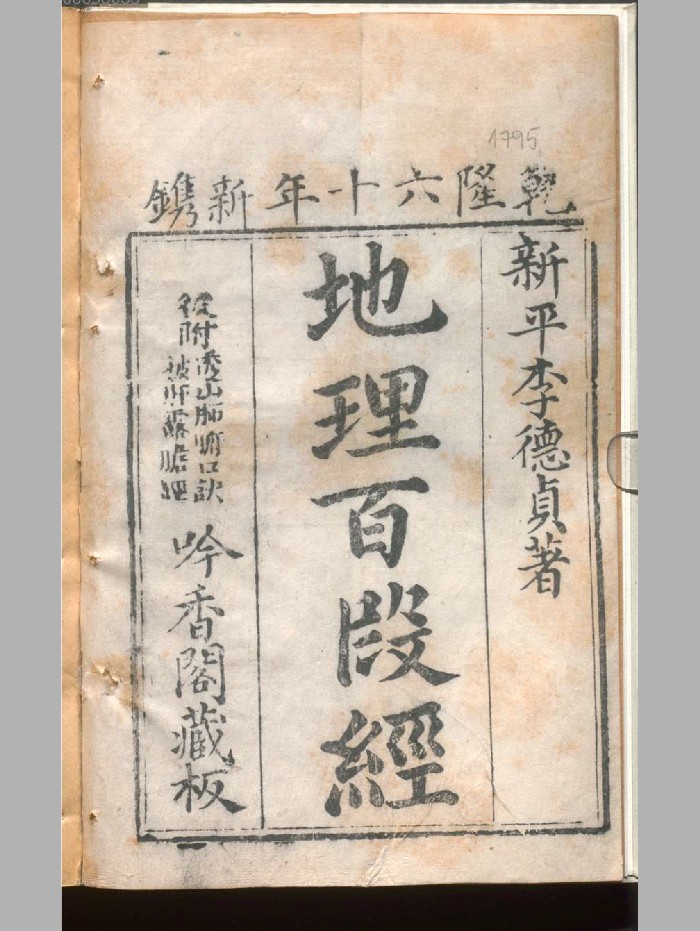 1795
乾隆六十年新鐫
新平李德貞著
地理百段經
後附透山肺腑口訣
被肝露膽經
吟香閣藏板